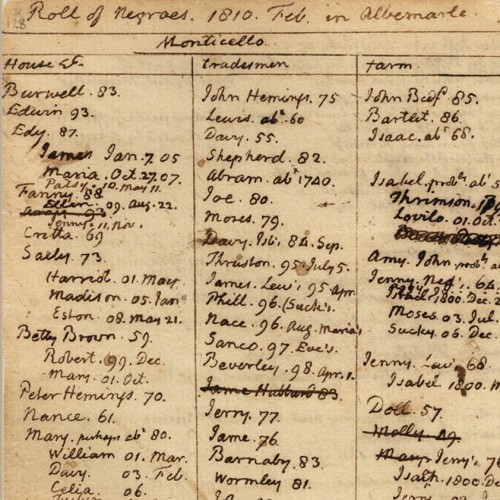 Roll of Negroes. 1810. Feb. in Albemarle.
Monticello.
House &c.
Burwell. 83.
Edwin 93.
Edy. 87.
James Jan. 7. 05
Maria. Oct. 27. 07.
Patsy. 10. May 11.
Fanny. 88
Ellen. 09. Aug. 22.
Jenny. 11. Nov.
Critta. 69
Sally. 73.
Harriet. 01. May.
Madison. 05. Jan
Eston. 08. May 21.
Betty Brown. 59.
Robert. 99. Dec.
Mary. 01. Oct.
Peter Hemings. 70.
Nance. 61.
Mary. perhaps abt 80.
William 01. Mar.
Davy. 03. Feb.
Celia. 06.
tradesmen
John Hemings. 75
Lewis. abt 60
Davy. 55.
Shepherd. 82.
Abram. abt 1740.
Joe. 80.
Moses. 79.
Davy. Isb. 84. Sep.
Thruston. 95. July 5.
James. Lew's 95 Apr.
Phill. 96. (Suck's.
Nace. 96. Aug. Maria's
Sanco. 97. Eve's.
Beverley. 98. Apr. 1.
Jame Hubbard 83
Jerry. 77.
Jame. 76.
Barnaby. 83.
Wormley 81.
farm
John Bedf 85.
Bartlet. 86.
Isaac. abt 68.
Isabel. probl. abt 5
Thrimson.
Lovilo. 01. Oct.
Amy. John. probl. a
Jenny. Ned's. 64.
Phill. 1800. Dec. 2
Moses. 03. Jul.
Sucky. 06. Dec.
Jenny. Lew' 68.
Isabel. 1800. M
Doll. 57.
Molly
Mary. Jerry's. 7
Isah. 1800. De
Jerry.